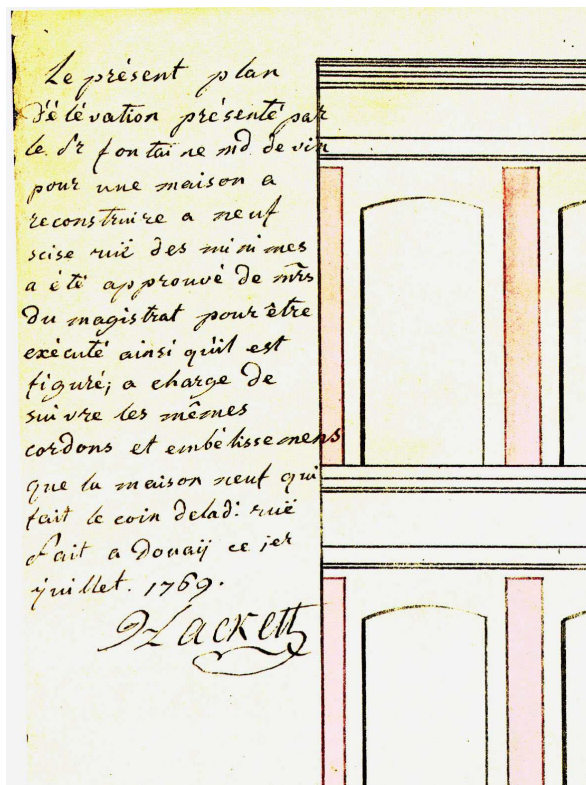 Le présent plan
d'élévation présenté par
le Sr fontaine md de vin
pour une maison a
reconstruire a neuf
scise ruë des minimes
a été approuvé de mrs
du magistrat pour être
exécuté ainsi qu'il est
figuré; a charge de
suivre les mêmes
cordons et embélissemens
que la maison neuf qui
fait le coin delad: ruë
fait a Doüaÿ ce jer
juillet. 1769.
Hackett